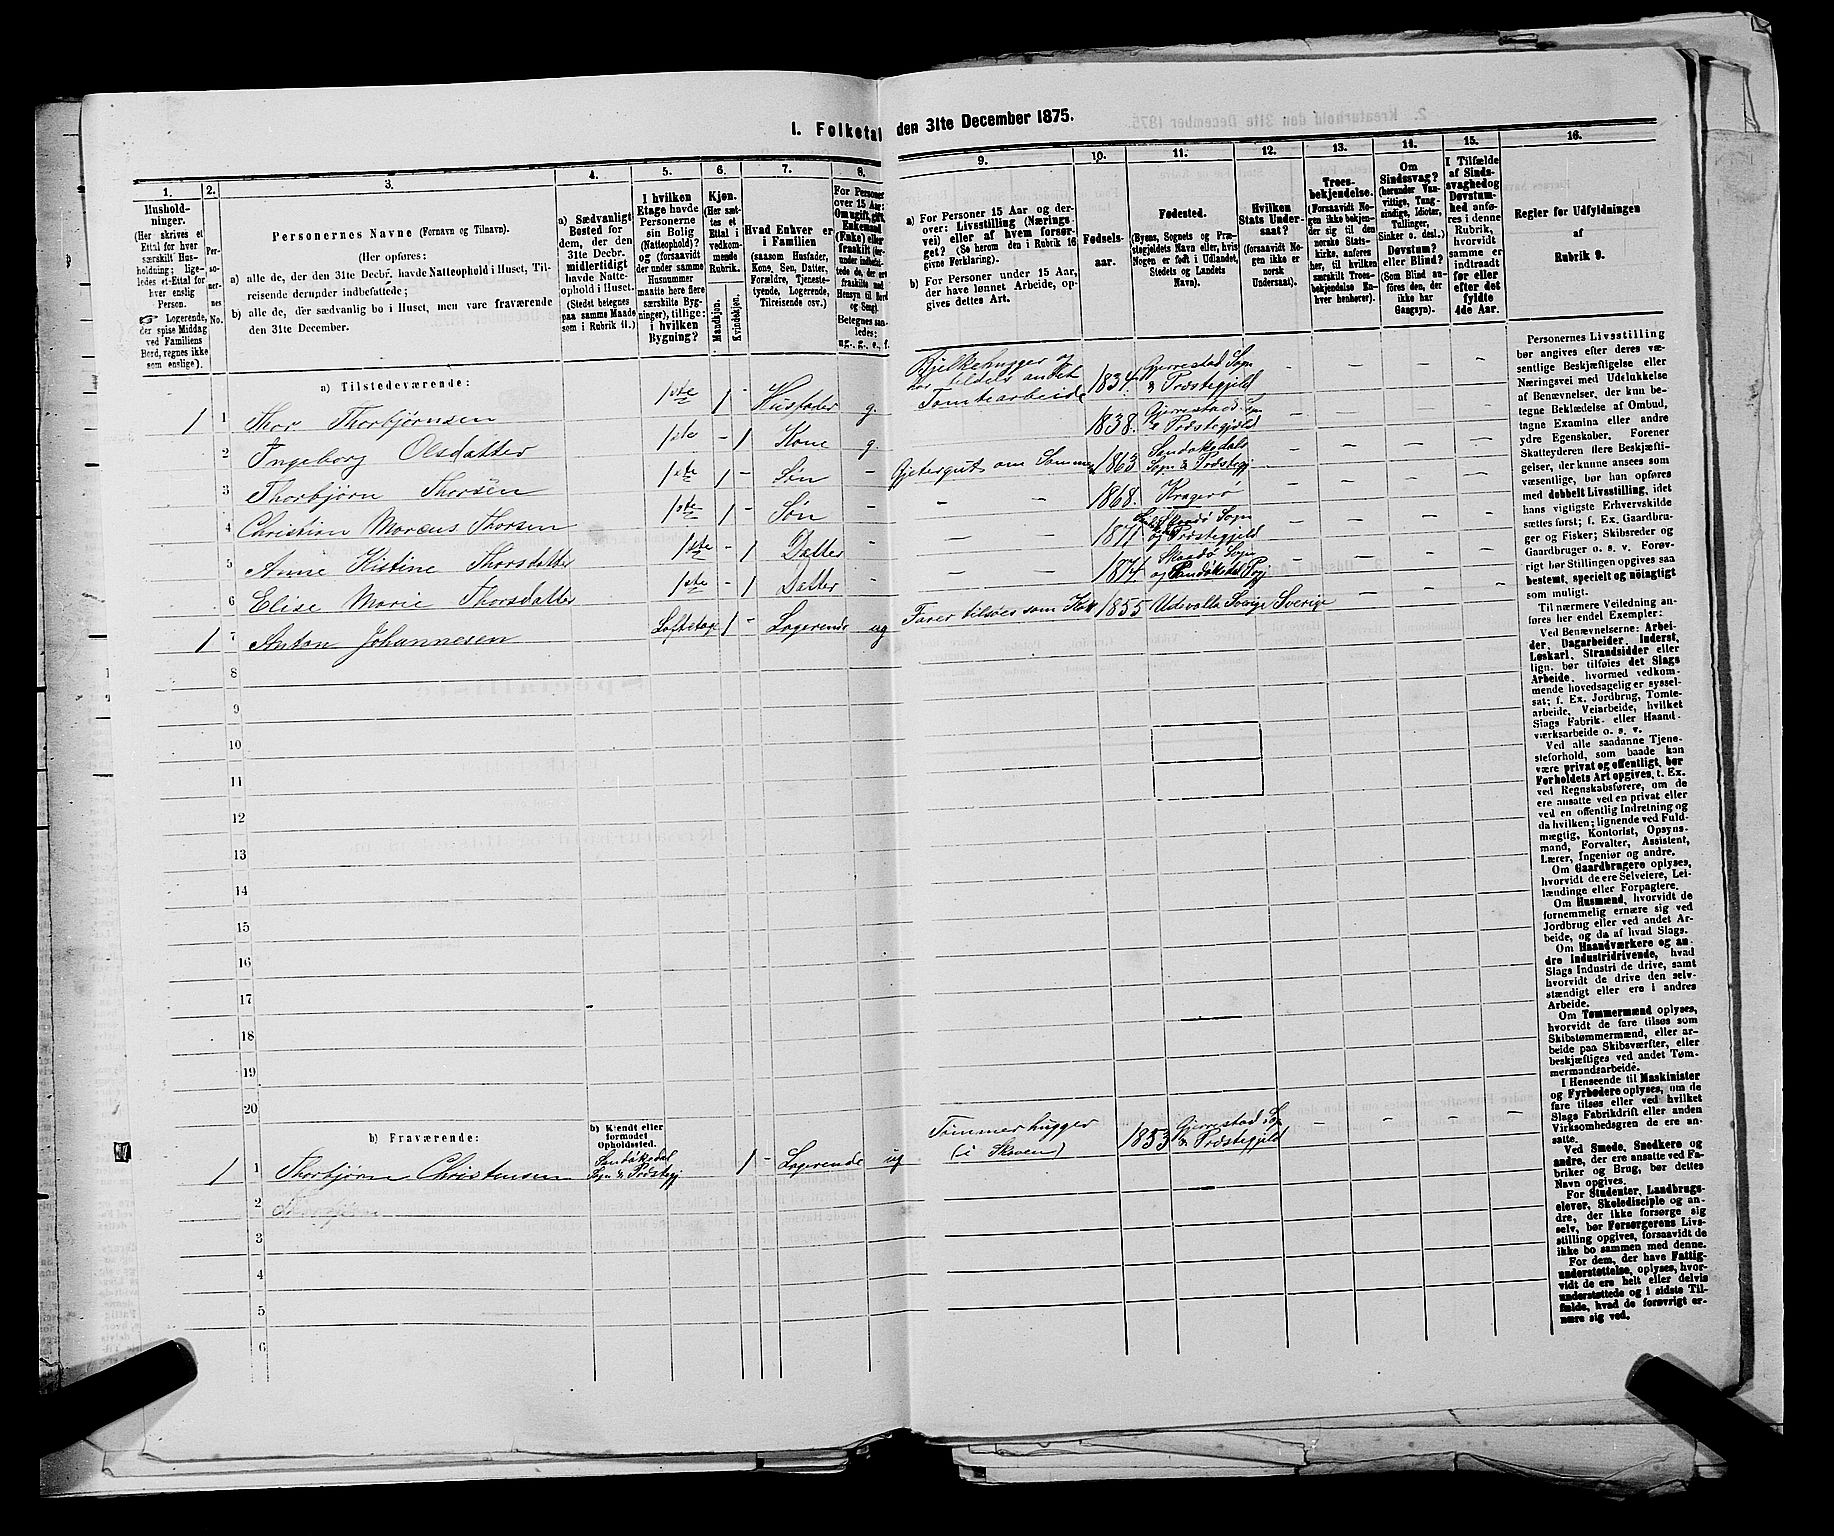 I. Folketal den 31te December 1875.
1. 2. 3. 4. 5. 6. 7. 8. 9. 10. 11. 12. 13. 14. 15. 16.
Husholdninger.
(Her skrives et
Ettal for hver
særskilt Husholdning;
ligeledes et Ettal for
hver enslig
Person.
☞ Logerende,
der spise Middag
ved Familiens
Bord, regnes ikke
som enslige).
Personernes No.
Personernes Navne (Fornavn og Tilnavn).
(Her opføres:
a) alle de, der den 31te Decbr. havde Natteophold i Huset, Tilreisende derunder indbefattede;
b) alle de, der sædvanlig bo i Huset, men vare fraværende
den 31te December.
a) Sædvanligt
Bosted for
dem, der den
31te Decbr.
midlertidigt
havde Natteophold i Huset.
(Stedet betegnes
paa samme Maade
som i Rubrik 11.)
I hvilken
Etage havde
Personerne
sin Bolig
(Natteophold)?
og (forsaavidt
der under samme
Husnummer
maatte høre flere
særskilte Bygninger), tillige:
i hvilken
Bygning?
Kjøn.
(Her sættes et
Ettal i
vedkommende
Rubrik.
Mandkjøn.
Kvindekjøn.
Hvad Enhver er
i Familien
(saasom Husfader,
Kone, Søn, Datter,
Forældre, Tjenestetyende, Logerende,
Tilreisende osv.)
For Personer
over 15 Aar:
Om ugift, gift,
Enkemand
(Enke) eller
fraskilt
Betegnes saaledes:
ug., g., e., f.
a) For Personer 15 Aar og derover: Livsstilling (Næringsvei) eller af hvem forsørget? (Se herom den i Rubrik 16
givne Forklaring).
b) For Personer under 15 Aar,
der have lønnet Arbeide, opgives dettes Art.
Fødselsaar.
Fødested.
(Byens, Sognets og Præstegjeldets Navn eller, hvis
Nogen er født i Udlandet,
Stedets og Landets
Navn).
Hvilken
Stats Undersaat?
(forsaavidt Nogen ikke er
norsk
Undersaat).
Troesbekjendelse.
(Forsaavidt Nogen ikke bekjender sig til den
norske Statskirke, anføres
her, til hvilken
særskilt Troesbekjendelse Enhver henhører).
Om
Sindssvag?
(herunder Vanvittige, Tungsindige, Idioter,
Tullinger,
Sinker o. desl.)
Døvstum?
eller Blind?
(Som Blind anføres den, der
ikke har
Gangsyn).
I Tilfælde
af Sindssvaghed og
Døvstumhed anføres i denne
Rubrik,
hvorvidt
samme er
indtraadt
før eller
efter det
fyldte
4de Aar.
Regler for Udfyldningen
af
Rubrik 9.
a) Tilstedeværende:
1 1 Thor Thorbjørnsen 1ste 1 - Husfader g. Bjelkehugger og har tildels andet Tomtearbeide 1834 Gjerrestad Sogn & Præstegjeld - - - -
2 Ingeborg Olsdatter 1ste - 1 Kone g. 1838. Gjerrestad Sogn & Præstegjeld - - - -
3 Thorbjørn Thorsen 1ste 1 - Søn - Gjetergut om Sommeren 1863 Sandøkedals Sogn & Præstegj - - - -
4 Christian Marcus Thorsen 1ste 1 - Søn - - - 1868. Kragerø - - - -
5 Anne Kistine Thorsdatter 1ste - 1 Datter - - - 1871 Skaadø Sogn og Præstegjeld - - - -
6 Elise Marie Thorsdatter 1ste - 1 Datter - - - 1874 Skaadø Sogn og Sandøkedal Præj - - - -
1 7 Anton Johannesen Loftetag 1 - Logerende ug Farer tilsøes som Kok 1855 Udevalla Sverige Sverige - - -
8
9
10
11
12
13
14
15
16
17
18
19
20
b) Fraværende:
b) Kjendt eller
formodet
Opholdssted.
1 1 Thorbjørn Christensen Sandøkedal Sogn & Præstegj 1 - Logerende ug Tømmerhugger (i Skoven) 1853 Gjerrestad Sogn & Præstegjeld - - - -
2 Thorbjørn
3
4
5
6
Personernes Livsstilling
bør angives efter deres væsentlige Beskjæftigelse eller
Næringsvei med Udelukkelse
af Benævnelser, der kun betegne Beklædelse af Ombud,
tagne Examina eller andre
ydre Egenskaber. Forener
Skatteyderen flere Beskjæftigelser, der kunne ansees som
væsentlige, bør han opføres
med dobbelt Livsstilling, idet
hans vigtigste Erhvervskilde
sættes først; f. Ex. Gaardbruger og Fisker; Skibsreder og
Gaardbruger o. s. v. Forøvrigt bør Stillingen opgives saa
bestemt, specielt og nøiagtigt
som muligt.
Til nærmere Veiledning anføres her endel Exempler:
Ved Benævnelserne: Arbeider, Dagarbeider, Inderst,
Løskarl, Strandsidder eller
lign. bør tilføies det Slags
Arbeide, hvormed vedkommende hovedsagelig er sysselsat; f. Ex. Jordbrug, Tomtearbeide, Veiarbeide, hvilket
Slags Fabrik- eller Haandværksarbeide o. s. v.
Ved alle saadanne Tjenesteforhold, som baade kan
være privat og offentligt, bør
Forholdets Art opgives, t. Ex.
ved Regnskabsførere, om de
ere ansatte ved en privat eller
ved en offentlig Indretning og
da hvilken; lignende ved Fuldmægtig, Kontorist, Opsynsmand, Forvalter, Assistent,
Lærer, Ingeniør og andre.
Om Gaardbrugere oplyses,
hvorvidt de ere Selveiere, Leilændinge eller Forpagtere.
Om Husmænd, hvorvidt de
fornemmelig ernære sig ved
Jordbrug eller ved andet Arbeide, og da af hvad Slags.
Om Haandværkere og andre Industridrivende, hvad
Slags Industri de drive, samt
hvorvidt de drive den selvstændigt eller ere i andres
Arbeide.
Om Tømmermænd oplyses,
hvorvidt de fare tilsøs som
Skibstømmermænd, eller arbeide paa Skibsværfter, eller
beskjæftiges ved andet Tømmermandsarbeide.
I Henseende til Maskinister
og Fyrbødere oplyses, om de
fare tilsøs eller ved hvilket
Slags Fabrikdrift eller anden
Virksomhedsgren de ere ansatte.
Ved Smede, Snedkere og
andre, der ere ansatte ved Fabriker og Brug, bør dettes
Navn opgives.
For Studenter, Landbrugselever, Skoledisciple og andre, der ikke forsørge sig
selv, bør Forsørgerens Livsstilling opgives, forsaavidt de
ikke bo sammen med denne.
For dem, der have Fattigunderstøttelse, oplyses, hvorvidt de ere helt eller delvis
understøttede og i sidste Tilfælde, hvad de forøvrigt ernære sig ved.